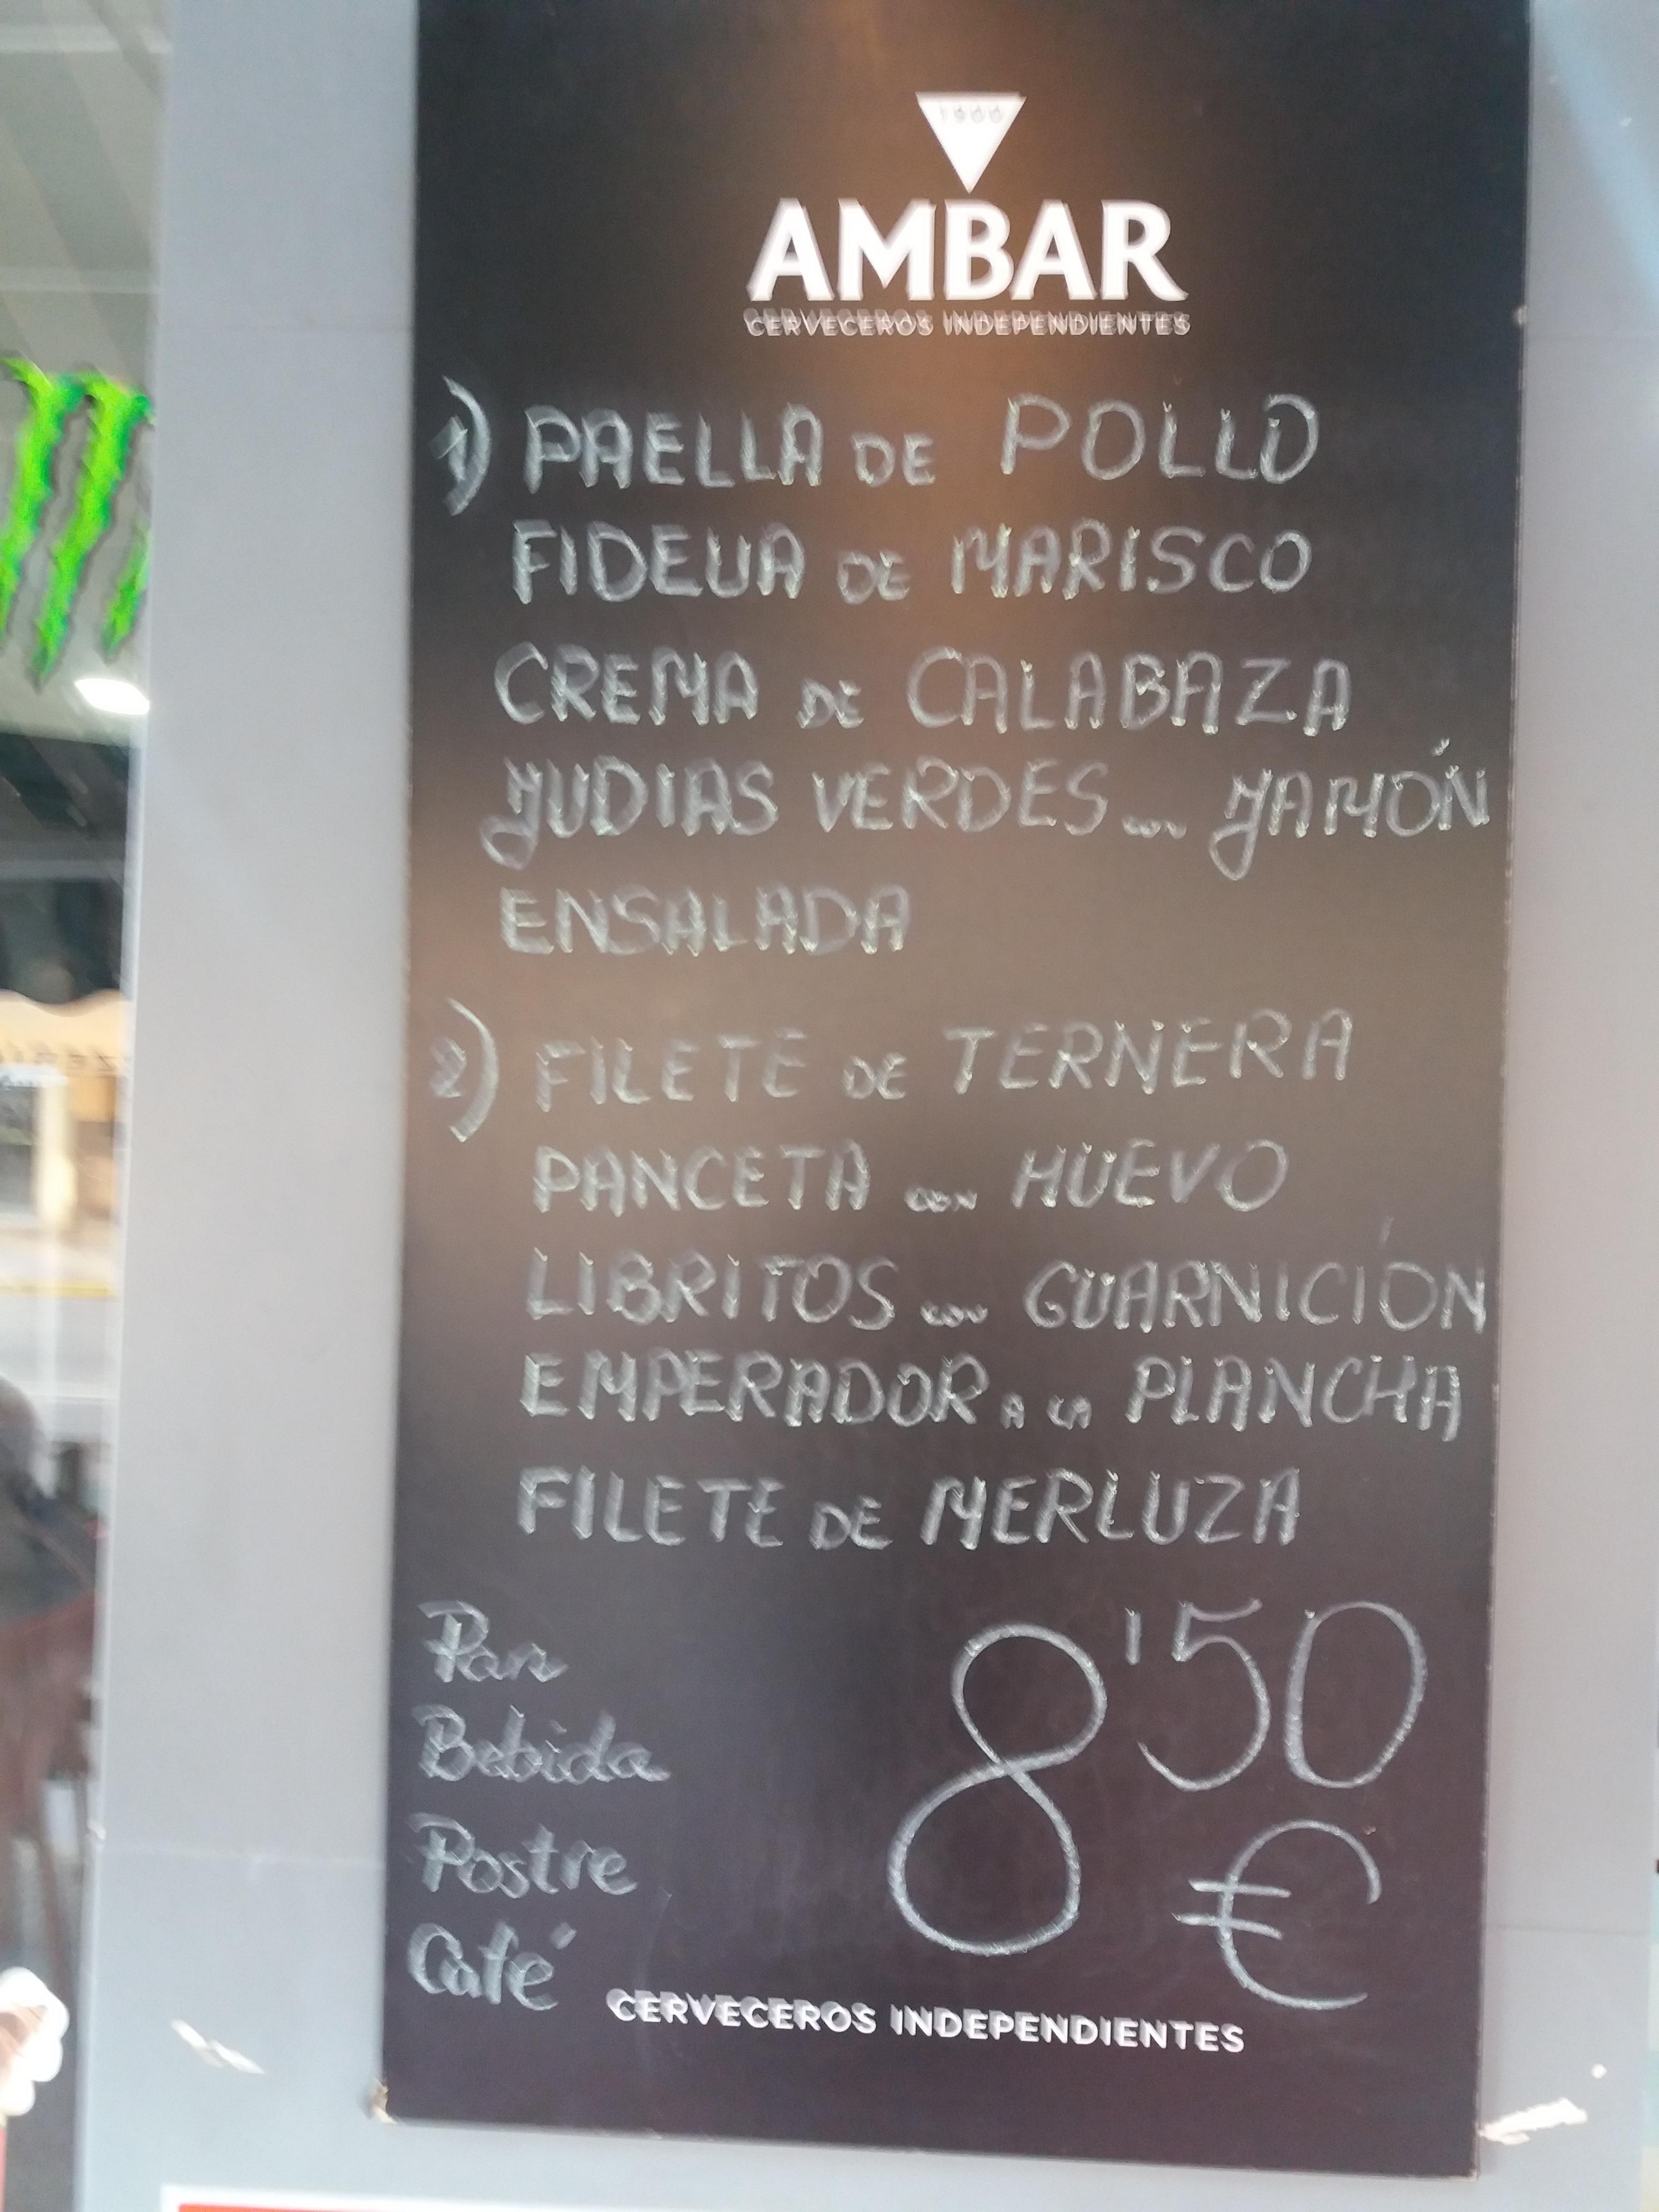 1900
AMBAR
CERVECEROS INDEPENDIENTES
1) PAELLA DE POLLO
FIDEUA DE MARISCO
CREMA DE CALABAZA
JUDIAS VERDES con JAMÓN
ENSALADA
2) FILETE DE TERNERA
PANCETA con HUEVO
LIBRITOS con GUARNICIÓN
EMPERADOR A LA PLANCHA
FILETE DE MERLUZA
Pan
Bebida
Postre
Café
8'50
€
CERVECEROS INDEPENDIENTES